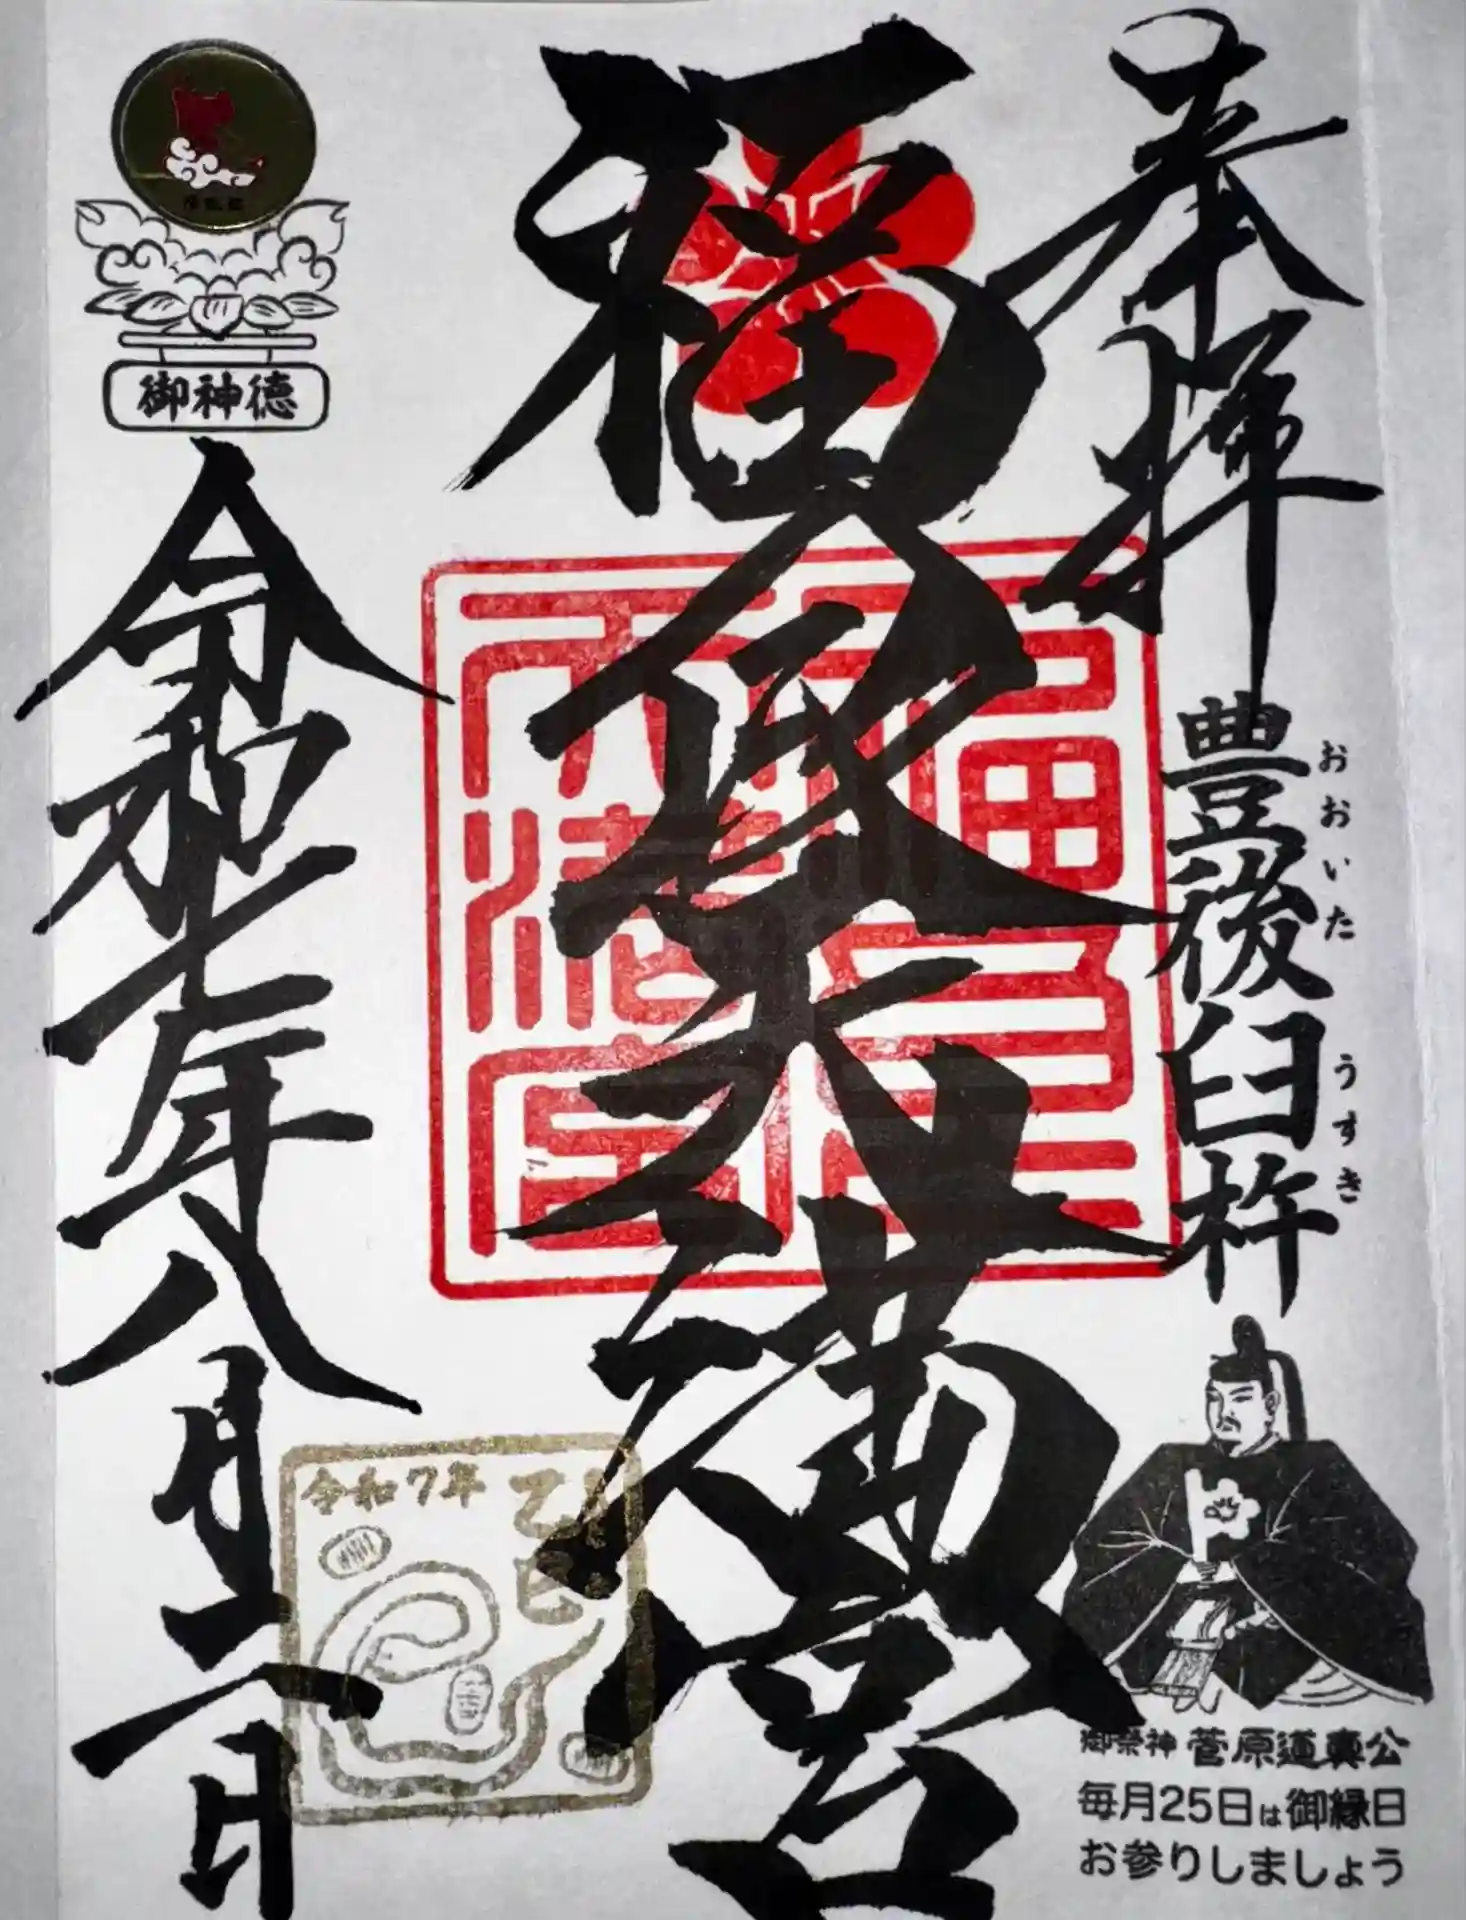 奉拝
豊後臼杵
おおいた うすき
御祭神 菅原道真公
毎月25日は御縁日
お参りしましょう
福良天満宮
福良
天満宮
御神徳
令和七年八月二日
令和7年
乙巳